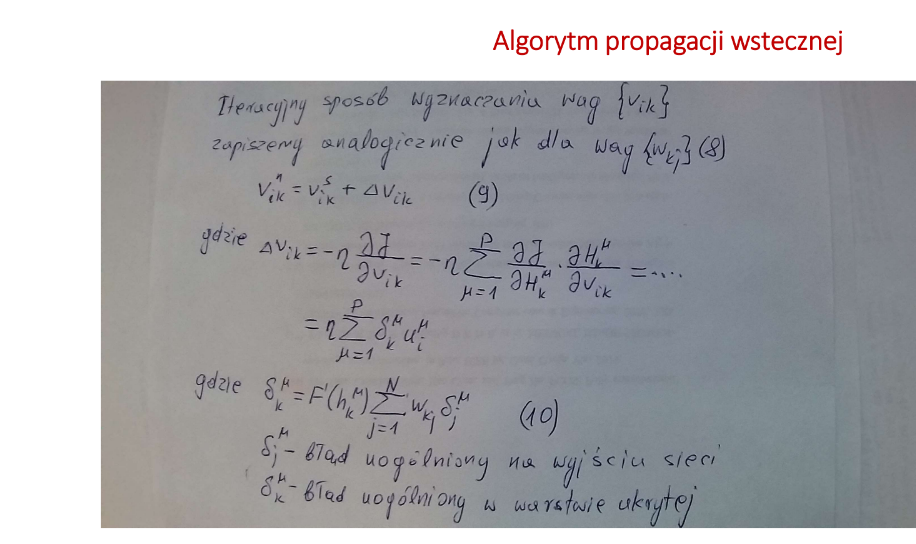 Algorytm propagacji wstecznej
Iteracyjny sposób wyznaczania wag {v_ik}
zapiszemy analogicznie jak dla wag {w_kj} (8)
v_ik^n = v_ik^s + Δv_ik (9)
gdzie Δv_ik = -η ∂J/∂v_ik = -η ∑_{μ=1}^{P} ∂J/∂H_k^μ · ∂H_k^μ/∂v_ik = ....
= η ∑_{μ=1}^{P} δ_k^μ u_i^μ
gdzie δ_k^μ = F'(h_k^μ) ∑_{j=1}^{N} w_kj δ_j^μ (10)
δ_j^μ - błąd uogólniony na wyjściu sieci
δ_k^μ - błąd uogólniony w warstwie ukrytej